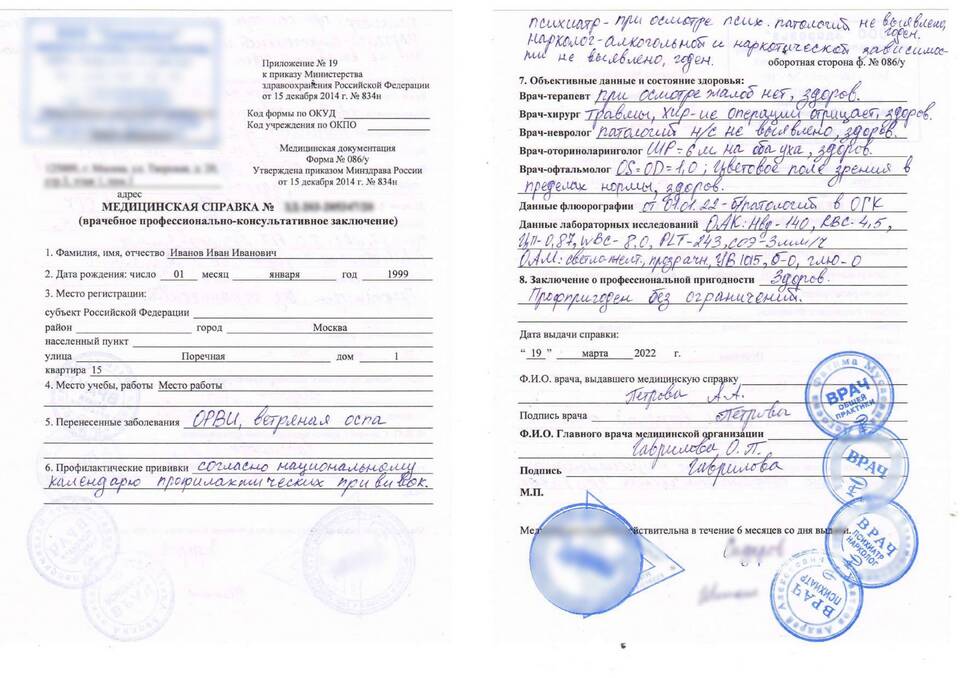 Приложение № 19
к приказу Министерства
здравоохранения Российской Федерации
от 15 декабря 2014 г. № 834н
Код формы по ОКУД
Код учреждения по ОКПО
Медицинская документация
Форма № 086/у
Утверждена приказом Минздрава России
от 15 декабря 2014 г. № 834н
адрес
МЕДИЦИНСКАЯ СПРАВКА №
(врачебное профессионально-консультативное заключение)
1. Фамилия, имя, отчество Иванов Иван Иванович
2. Дата рождения: число 01 месяц января год 1999
3. Место регистрации:
субъект Российской Федерации
район город Москва
населенный пункт
улица Поречная дом 1
квартира 15
4. Место учебы, работы Место работы
5. Перенесенные заболевания ОРВИ, ветреная оспа
6. Профилактические прививки согласно национальному
календарю профилактических прививок.
психиатр - при осмотре псих. патологий не выявлено,
годен.
нарколог-алкогольной и наркотической зависимос-
ти не выявлено, годен.
оборотная сторона ф. № 086/у
7. Объективные данные и состояние здоровья:
Врач-терапевт при осмотре жалоб нет, здоров.
Врач-хирург травмы, хир-ие операции отрицает, здоров.
Врач-невролог патологий н/с не выявлено, здоров.
Врач-оториноларинголог ШР=6м на оба уха, здоров.
Врач-офтальмолог OS=OD=1,0; Цветовое поле зрения в
пределах нормы, здоров.
Данные флюорографии от 09.01.22-б/патологий в ОГК
Данные лабораторных исследований ОАК: Hвд-140, RBC-4,5,
Цп-0,87, WBC-8,0, PLT-243, СОЭ-3мм/ч
ОАМ: светло-желт., прозрачн, УВ 1015, б-0, глю-0
8. Заключение о профессиональной пригодности Здоров.
Профпригоден без ограничений.
Дата выдачи справки:
“ 19 ” марта 2022 г.
Ф.И.О. врача, выдавшего медицинскую справку
Петрова А.А.
Подпись врача Петрова
Ф.И.О. Главного врача медицинской организации
Гаврилова О.П.
Подпись Гаврилова
М.П.
действительна в течение 6 месяцев со дня
Сидоров
ВРАЧ
ОБЩЕЙ
ПРАКТИКИ
ВРАЧ
ВРАЧ
ПСИХИАТР
НАРКОЛОГ
ВРАЧ
ПСИХИАТР